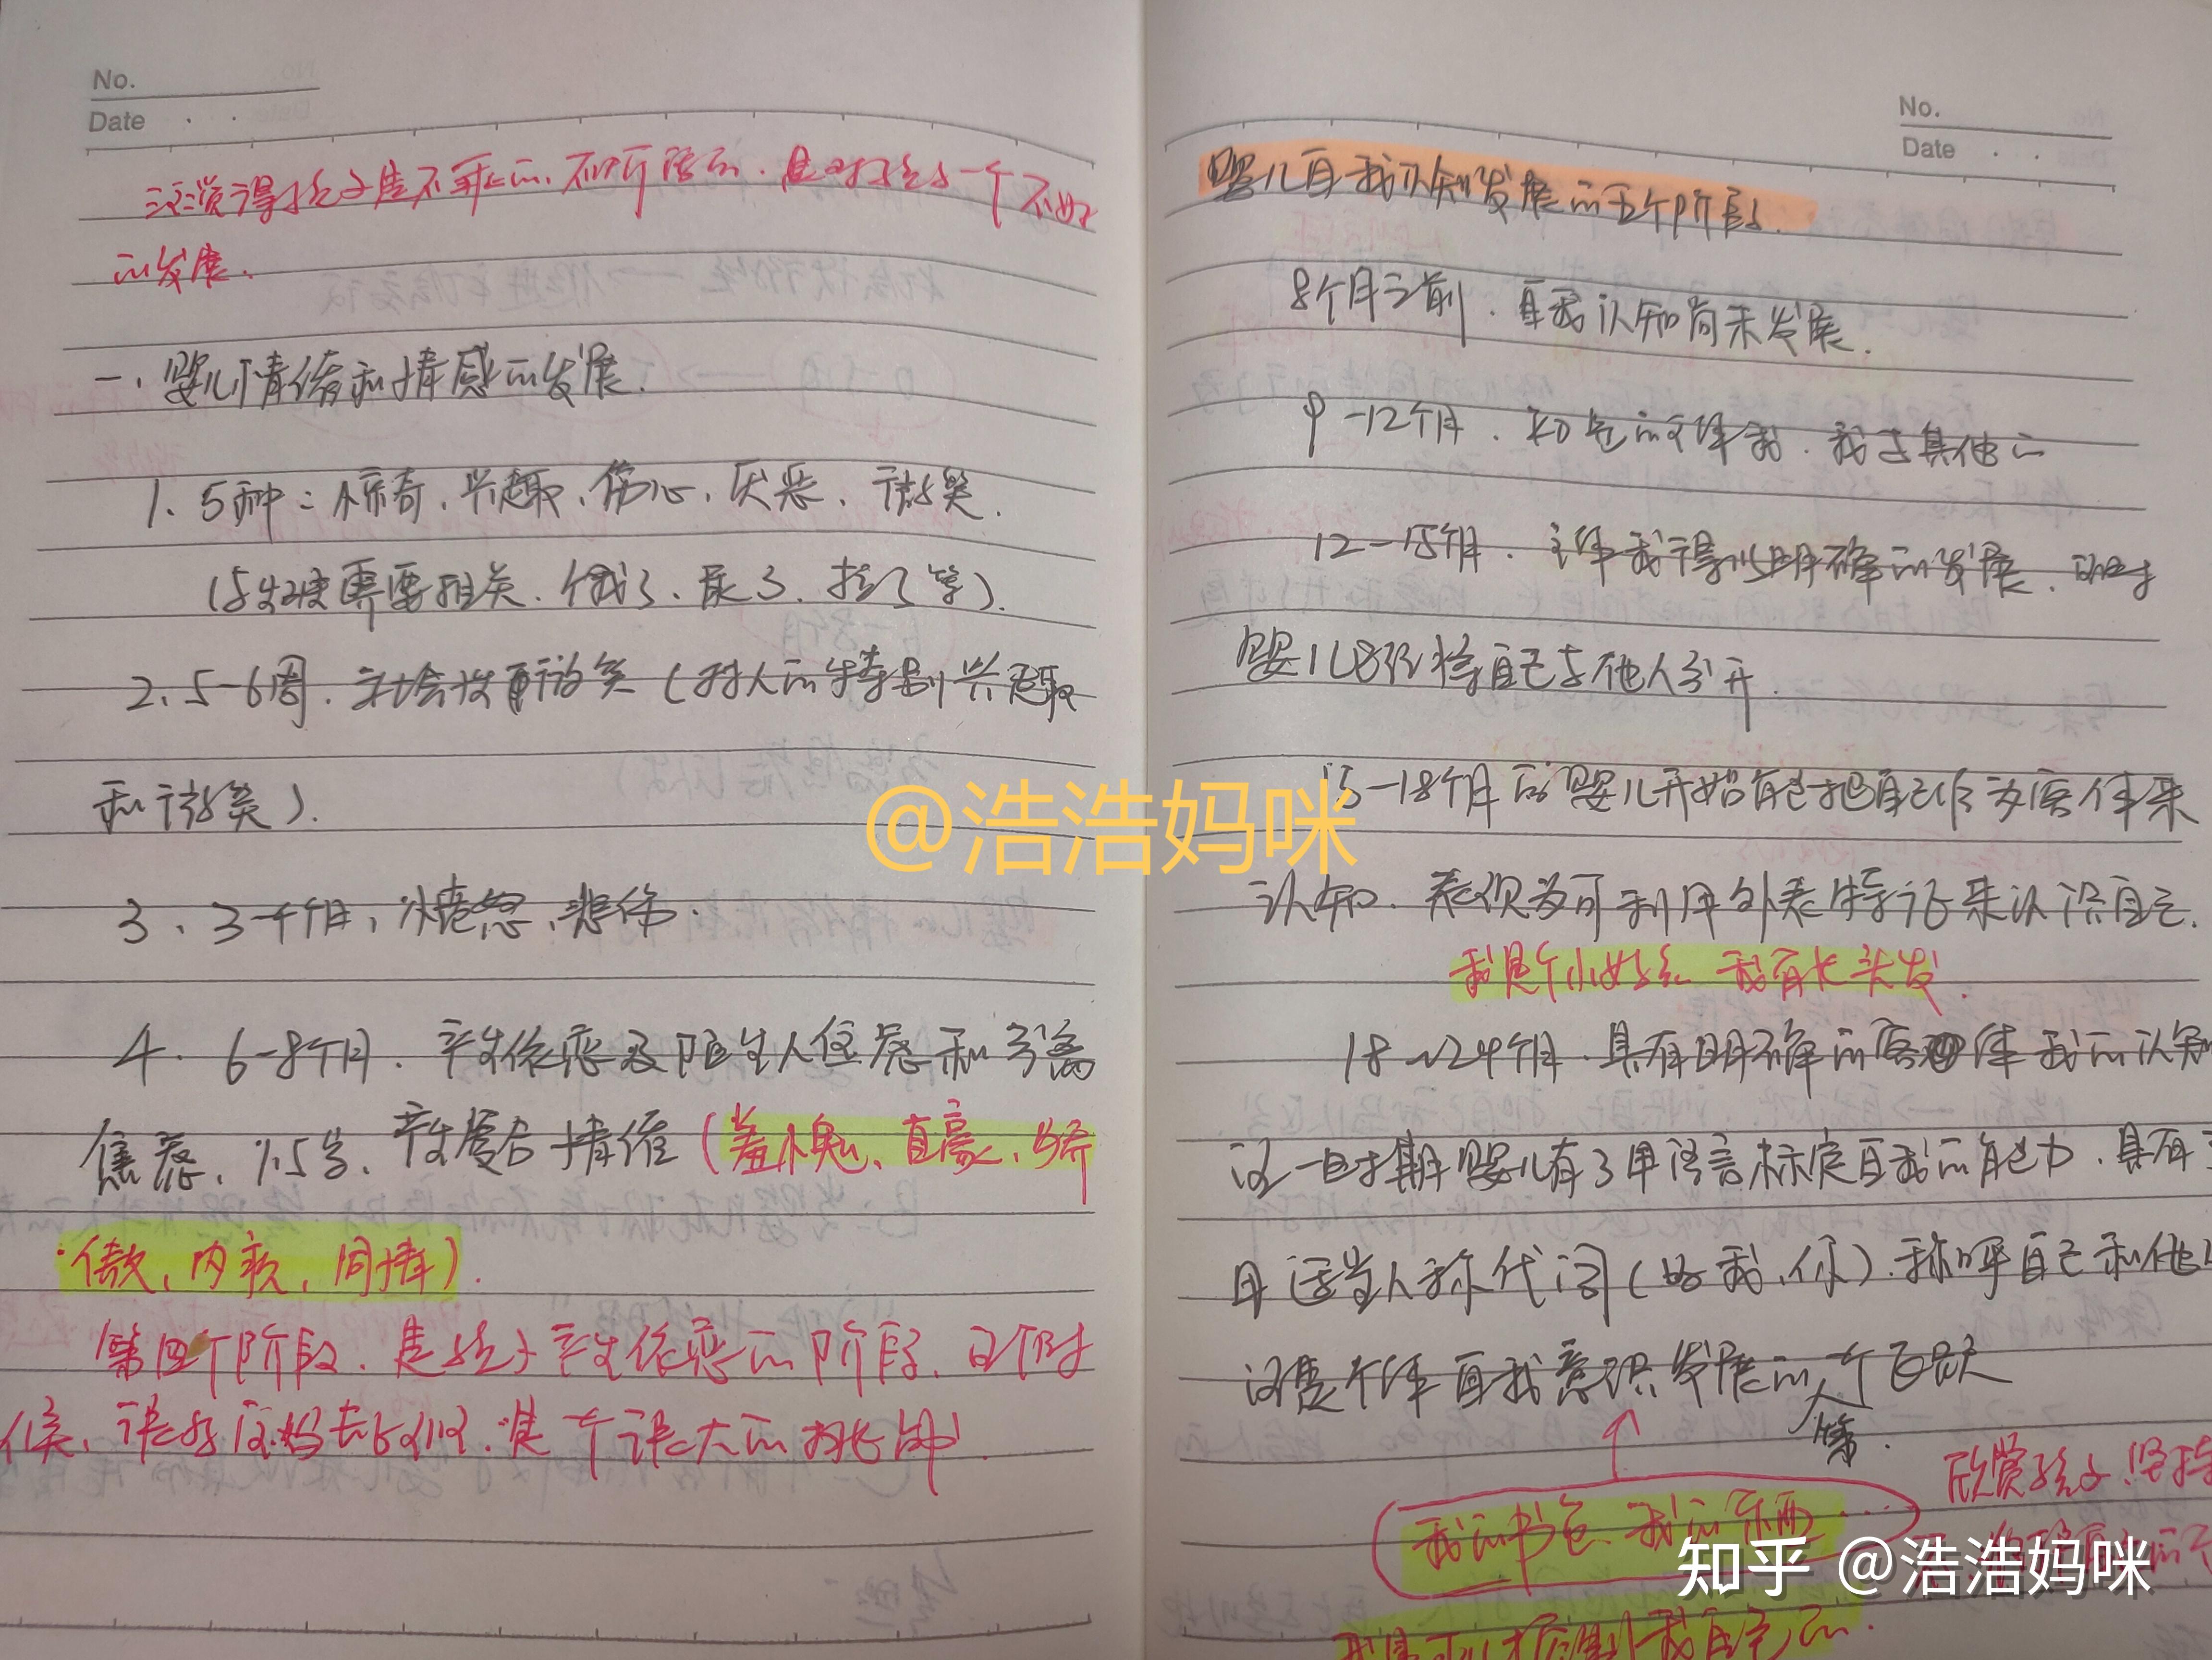 No.
Date
没觉得孩子是不乖的、不听话的.是对孩子一个不好
的发展.
一、婴儿情绪和情感的发展.
1、5种:惊奇、兴趣、伤心、厌恶、微笑.
(与生理需要相关.饿了、尿了、拉了等).
2、5-6周.社会性微笑(对人的特别兴趣
和微笑).
3、3-4个月,愤怒、悲伤.
4. 6-8个月.产生依恋及陌生人焦虑和分离
焦虑.1.5岁、产生复合情绪(羞愧、自豪、骄
傲、内疚、同情).
第四个阶段.是孩子产生依恋的阶段.这个时
候、
No.
Date
婴儿自我认知发展的五个阶段.
8个月之前.自我认知尚未发展.
9-12个月.初步的主体我.我与其他的
12-15个月.主体我得以明确的发展.这时
婴儿已经将自己与他人分开.
15-18个月的婴儿开始能把自己作为客体来
认知.表现为可利用外表特征来认识自己.
我是个小女孩 我有长头发.
18~24个月.具有明确的客体我的认知
这一时期婴儿有了用语言标定自我的能力.具有
用适当人称代词(如我、你).称呼自己和他
这是个体自我意识发展的第一个飞跃
欣赏孩子.坚持
我的书包、我的东西……
@浩浩妈咪
知乎 @浩浩妈咪